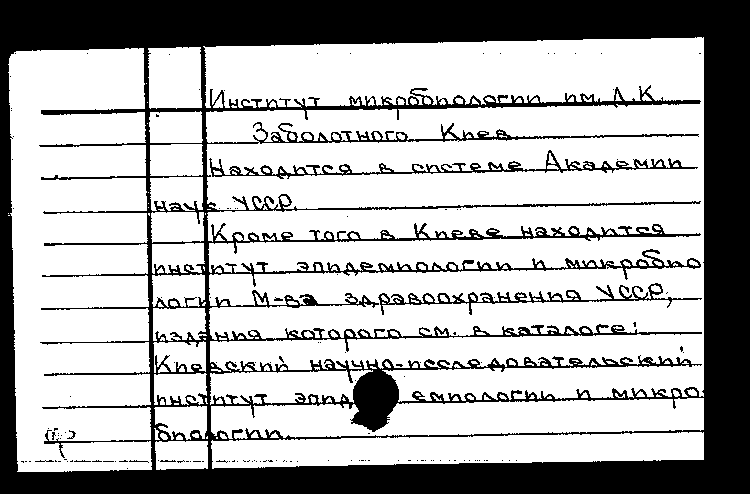 Институт микробиологии им. Д.К.
Заболотного Киев.
Находится в системе Академии
наук УССР.
Кроме того в Киеве находится
институт эпидемиологии и микробио
логии М-ва здравоохранения УССР,
издания которого см. в каталоге:
Киевский научно-исследовательский
институт эпидемиологии и микро-
биологии.